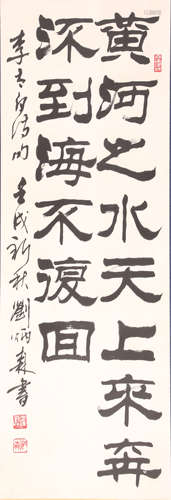 黄河之水天上來奔
流到海不復回
李太白詩句 壬戌新秋 劉炳森書